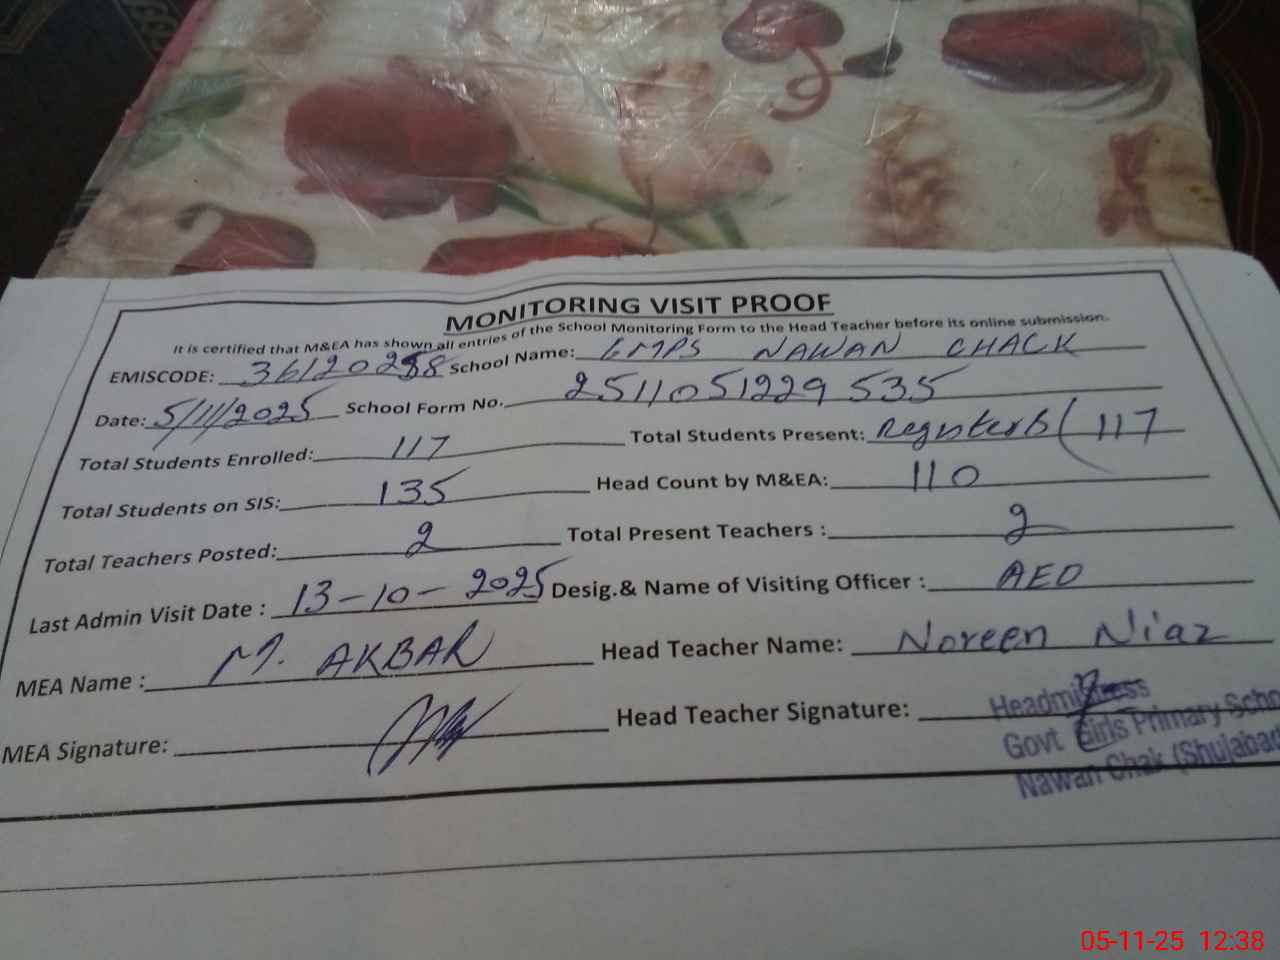 MONITORING VISIT PROOF
It is certified that M&EA has shown all entries of the School Monitoring Form to the Head Teacher before its online submission.
EMISCODE: 36120258 School Name: GMPS NAWAN CHACK
Date: 5/11/2025 School Form No. 2511051229535
Total Students Enrolled: 117 Total Students Present: Registerb( 117
Total Students on SIS: 135 Head Count by M&EA: 110
Total Teachers Posted: 2 Total Present Teachers : 2
Last Admin Visit Date : 13-10-2025 Desig.& Name of Visiting Officer : AEO
MEA Name : M. AKBAR Head Teacher Name: Noreen Niaz
MEA Signature: Head Teacher Signature:
Headmistress
Govt Girls Primary Scho
Nawan Chak (Shujabad
05-11-25 12:38